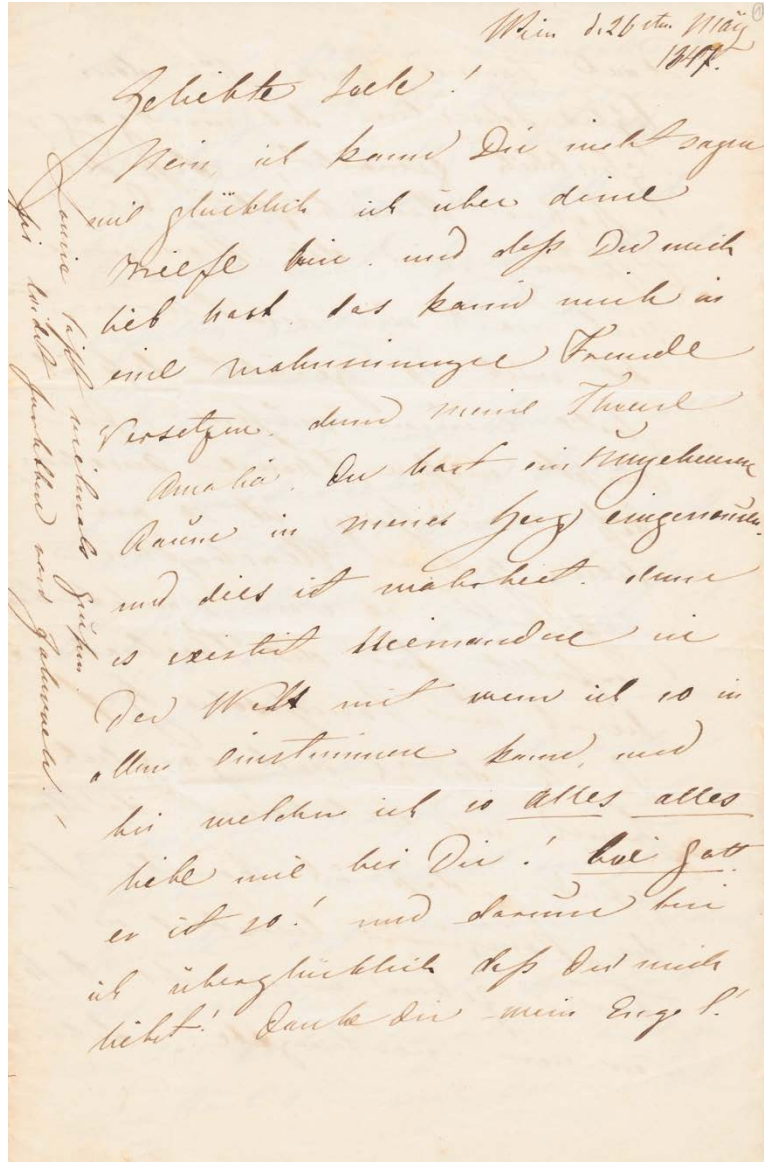 Wien d. 26ten März
1847.
Geliebte Seele!
Nein, ich kann Dir nicht sagen
wie glücklich ich über deine
Briefe bin. und daß Du mich
lieb hast. das kann mich in
eine wahnsinnige Freude
versetzen. denn meine Theure
Amalia. Du hast ein Ungeheuren
Raum in meines Herz eingenommen.
und dies ist wahrheit. denn
es existirt Niemanden in
Der Welt mit wem ich so in
allem einstimmen kann, und
bei welchen ich so alles alles
liebe wie bei Dir! bei Gott
es ist so! und darum bin
ich überglücklich daß Du mich
liebst! Danke Dir mein Engel!
Louise läßt vielmals grüßen.
sie leidet und Zahnweh!